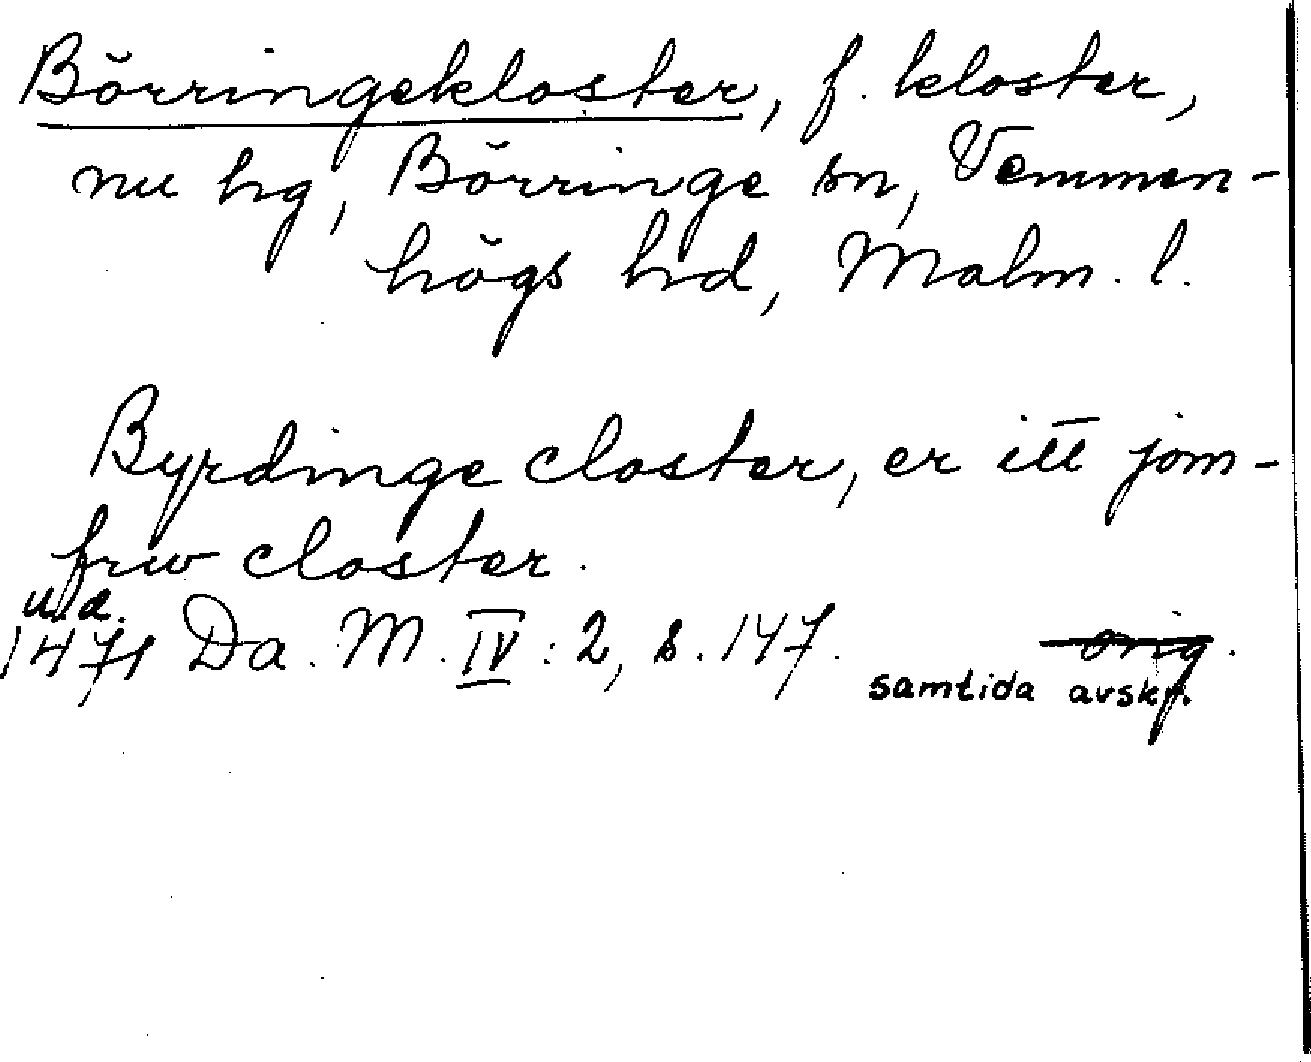 Börringekloster, f. kloster,
nu hg, Börringe sn, Vemmen-
högs hd, Malm. l.
Byrdinge closter, er itt jom-
frw closter.
u.d.
1471 Da. M. IV: 2, s. 147. orig.
samtida avskr.